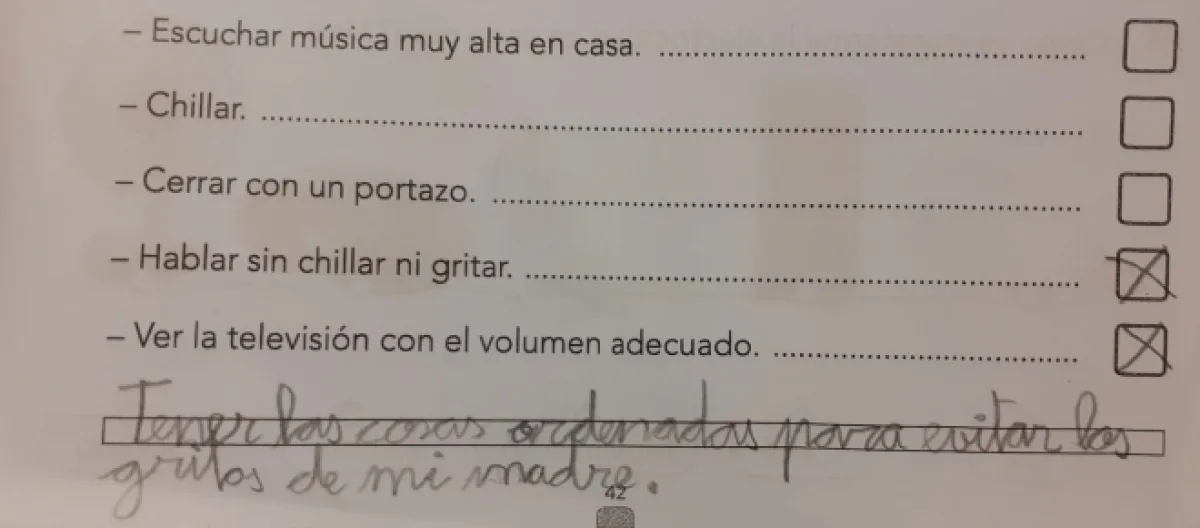 – Escuchar música muy alta en casa. ........................................
– Chillar. ........................................
– Cerrar con un portazo. ........................................
– Hablar sin chillar ni gritar. ........................................
– Ver la televisión con el volumen adecuado. ........................................
Tener las cosas ordenadas para evitar los
gritos de mi madre.
42